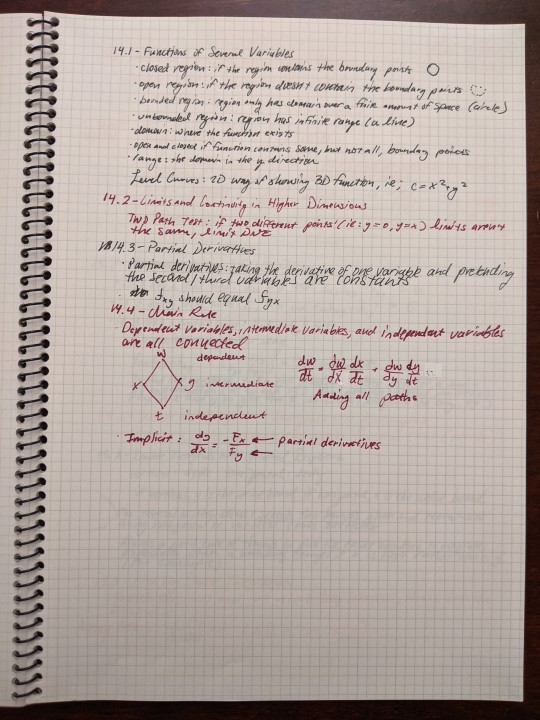 14.1 - Functions of Several Variables
· closed region: if the region contains the boundary points
· open region: if the region doesn't contain the boundary points
· bonded region: region only has domain over a finite amount of space (circle)
· unbounded region: region has infinite range (a line)
· domain: where the function exists
· open and closed if function contains some, but not all, boundary points
· range: the domain in the y direction
Level Curves: 2D way of showing 3D function, ie; c = x² + y²
14.2 - Limits and Continuity in Higher Dimensions
Two Path Test: if two different points (ie: y=0, y=x) limits aren't
the same, limit DNE
14.3 - Partial Derivatives
· Partial derivatives: taking the derivative of one variable and pretending
the second/third variables are constants
fxy should equal fyx
14.4 - Chain Rule
Dependent variables, intermediate variables, and independent variables
are all connected
w dependent
x y intermediate
t independent
dw/dt = dw/dx dx/dt + dw/dy dy/dt ...
Adding all paths
· Implicit: dy/dx = -Fx/Fy ← partial derivatives